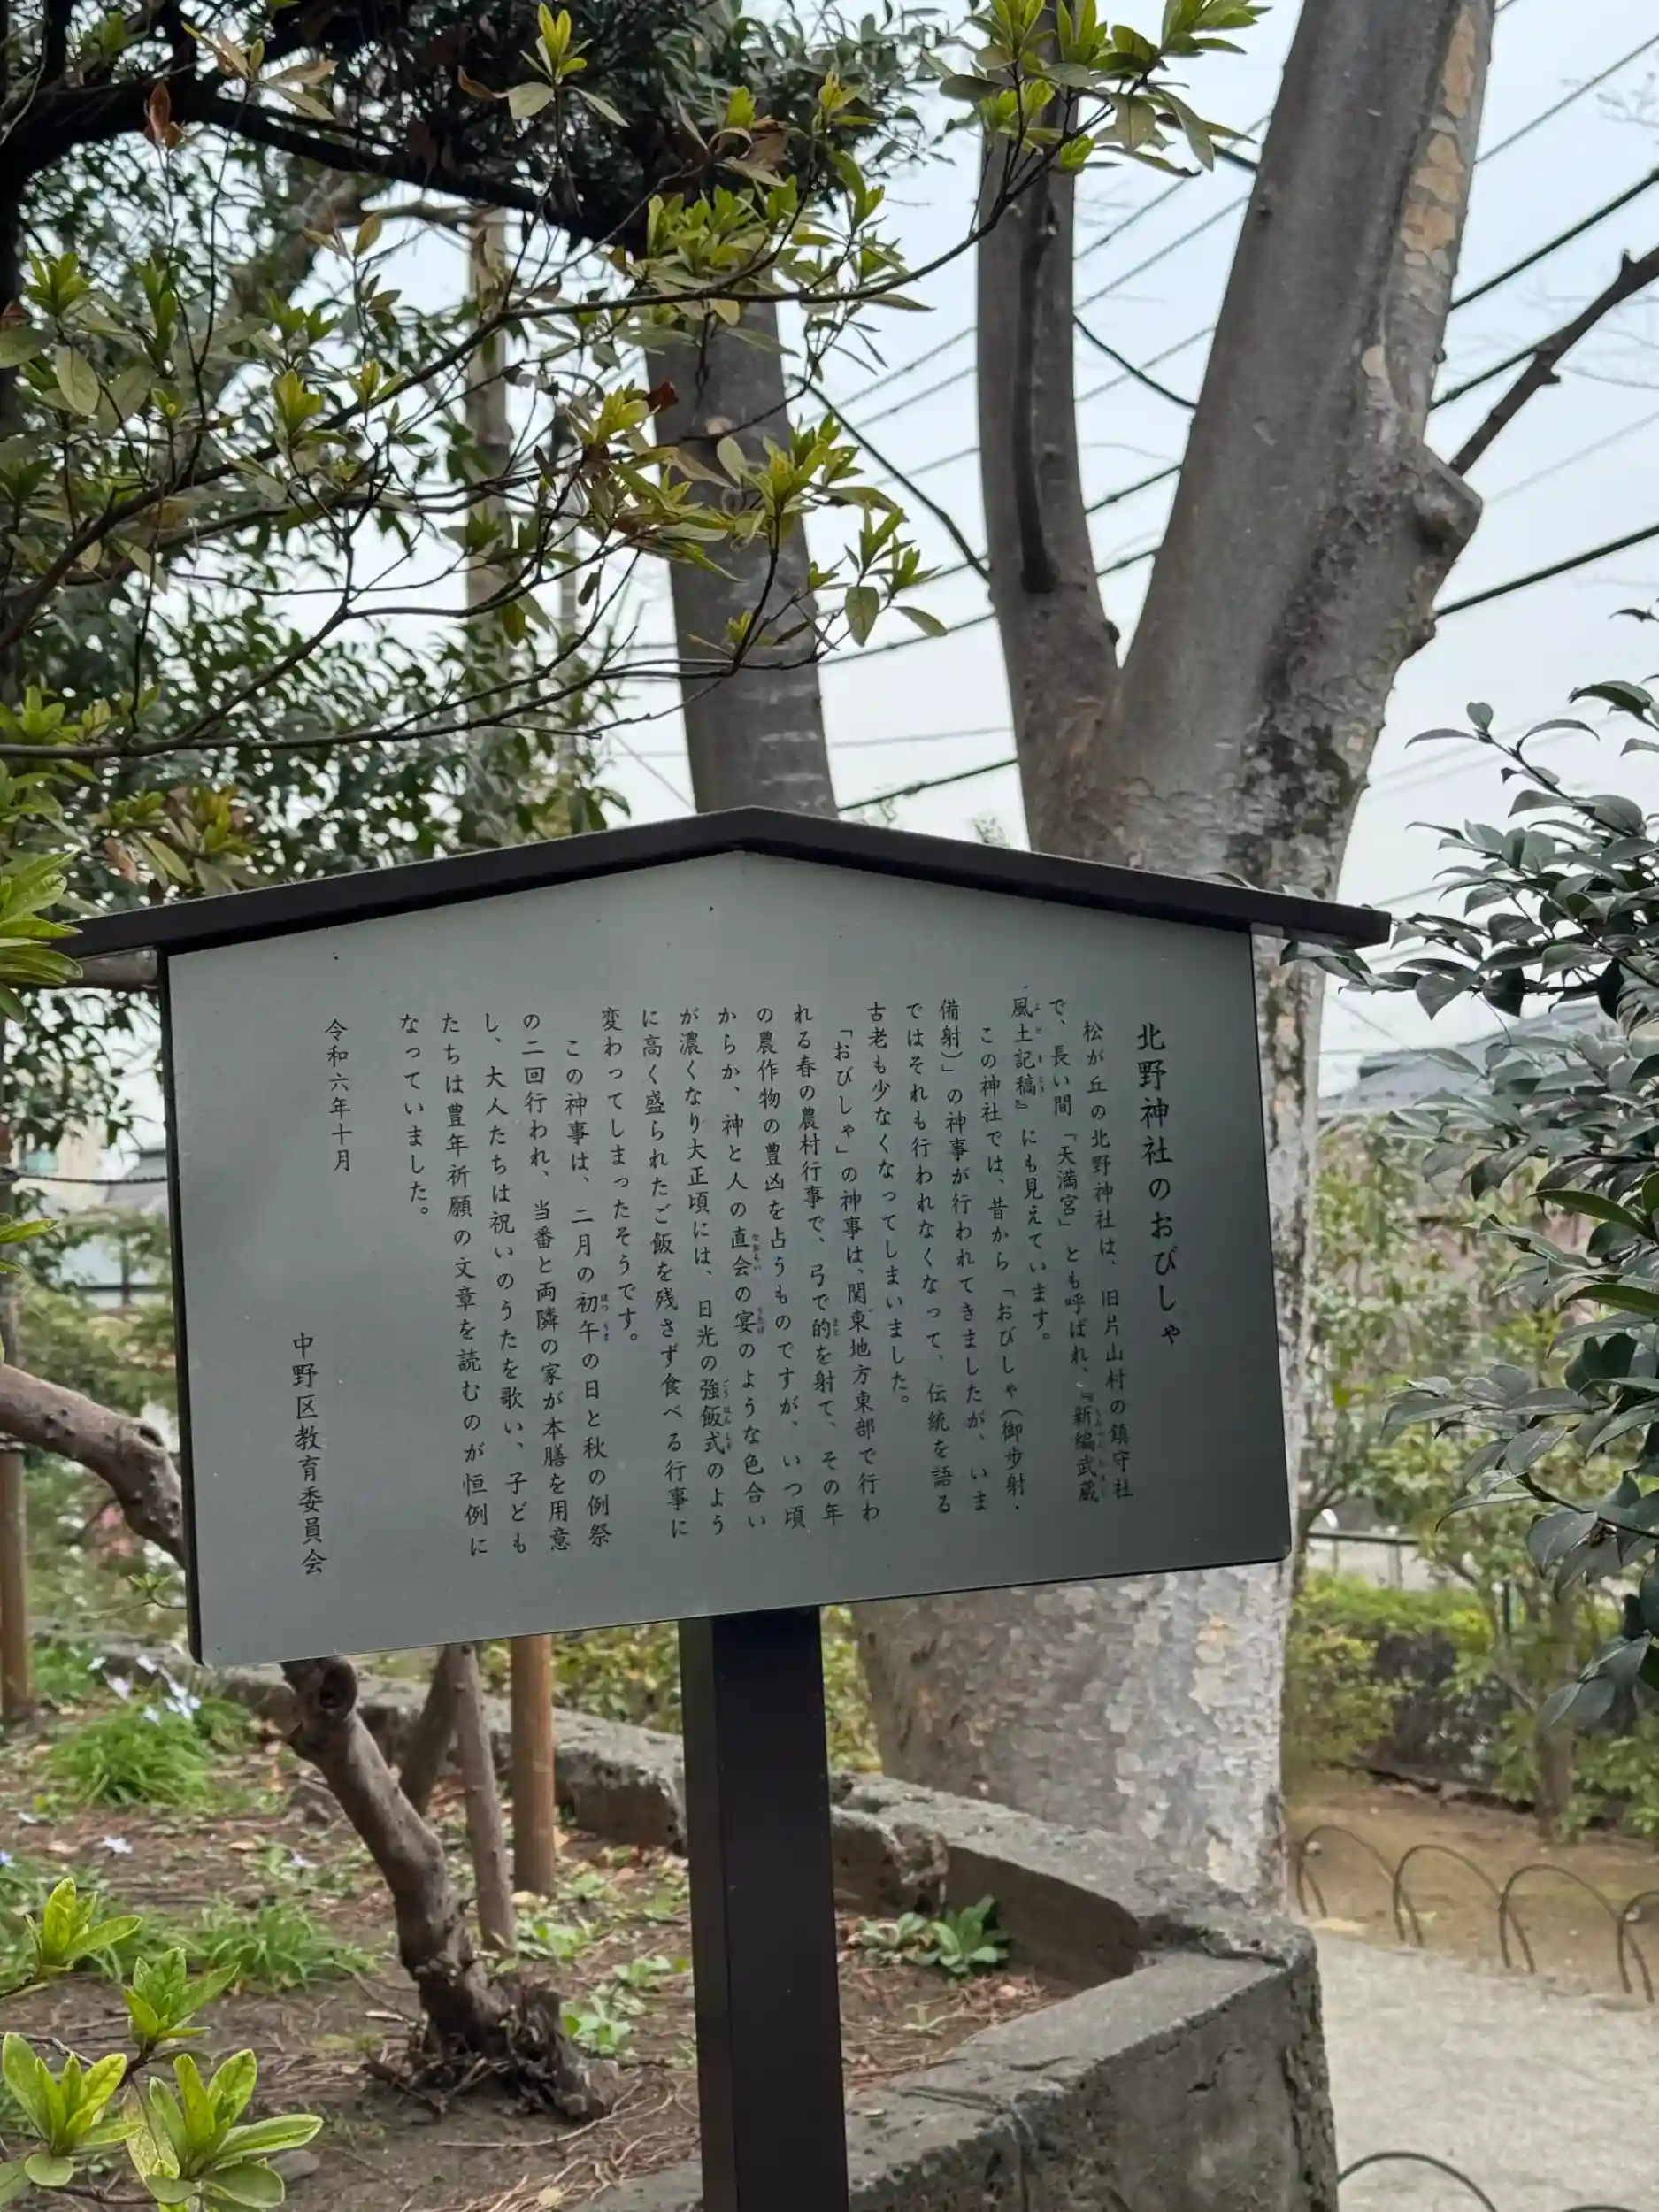 北野神社のおびしゃ
松が丘の北野神社は、旧片山村の鎮守社
で、長い間「天満宮」とも呼ばれ、『新編武蔵
風土記稿』にも見えています。
この神社では、昔から「おびしゃ(御歩射・
備射)」の神事が行われてきましたが、いま
ではそれも行われなくなって、伝統を語る
古老も少なくなってしまいました。
「おびしゃ」の神事は、関東地方東部で行わ
れる春の農村行事で、弓で的を射て、その年
の農作物の豊凶を占うものですが、いつ頃
からか、神と人の直会の宴のような色合い
が濃くなり大正頃には、日光の強飯式のよう
に高く盛られたご飯を残さず食べる行事に
変わってしまったそうです。
この神事は、二月の初午の日と秋の例祭
の二回行われ、当番と両隣の家が本膳を用意
し、大人たちは祝いのうたを歌い、子ども
たちは豊年祈願の文章を読むのが恒例に
なっていました。
令和六年十月
中野区教育委員会